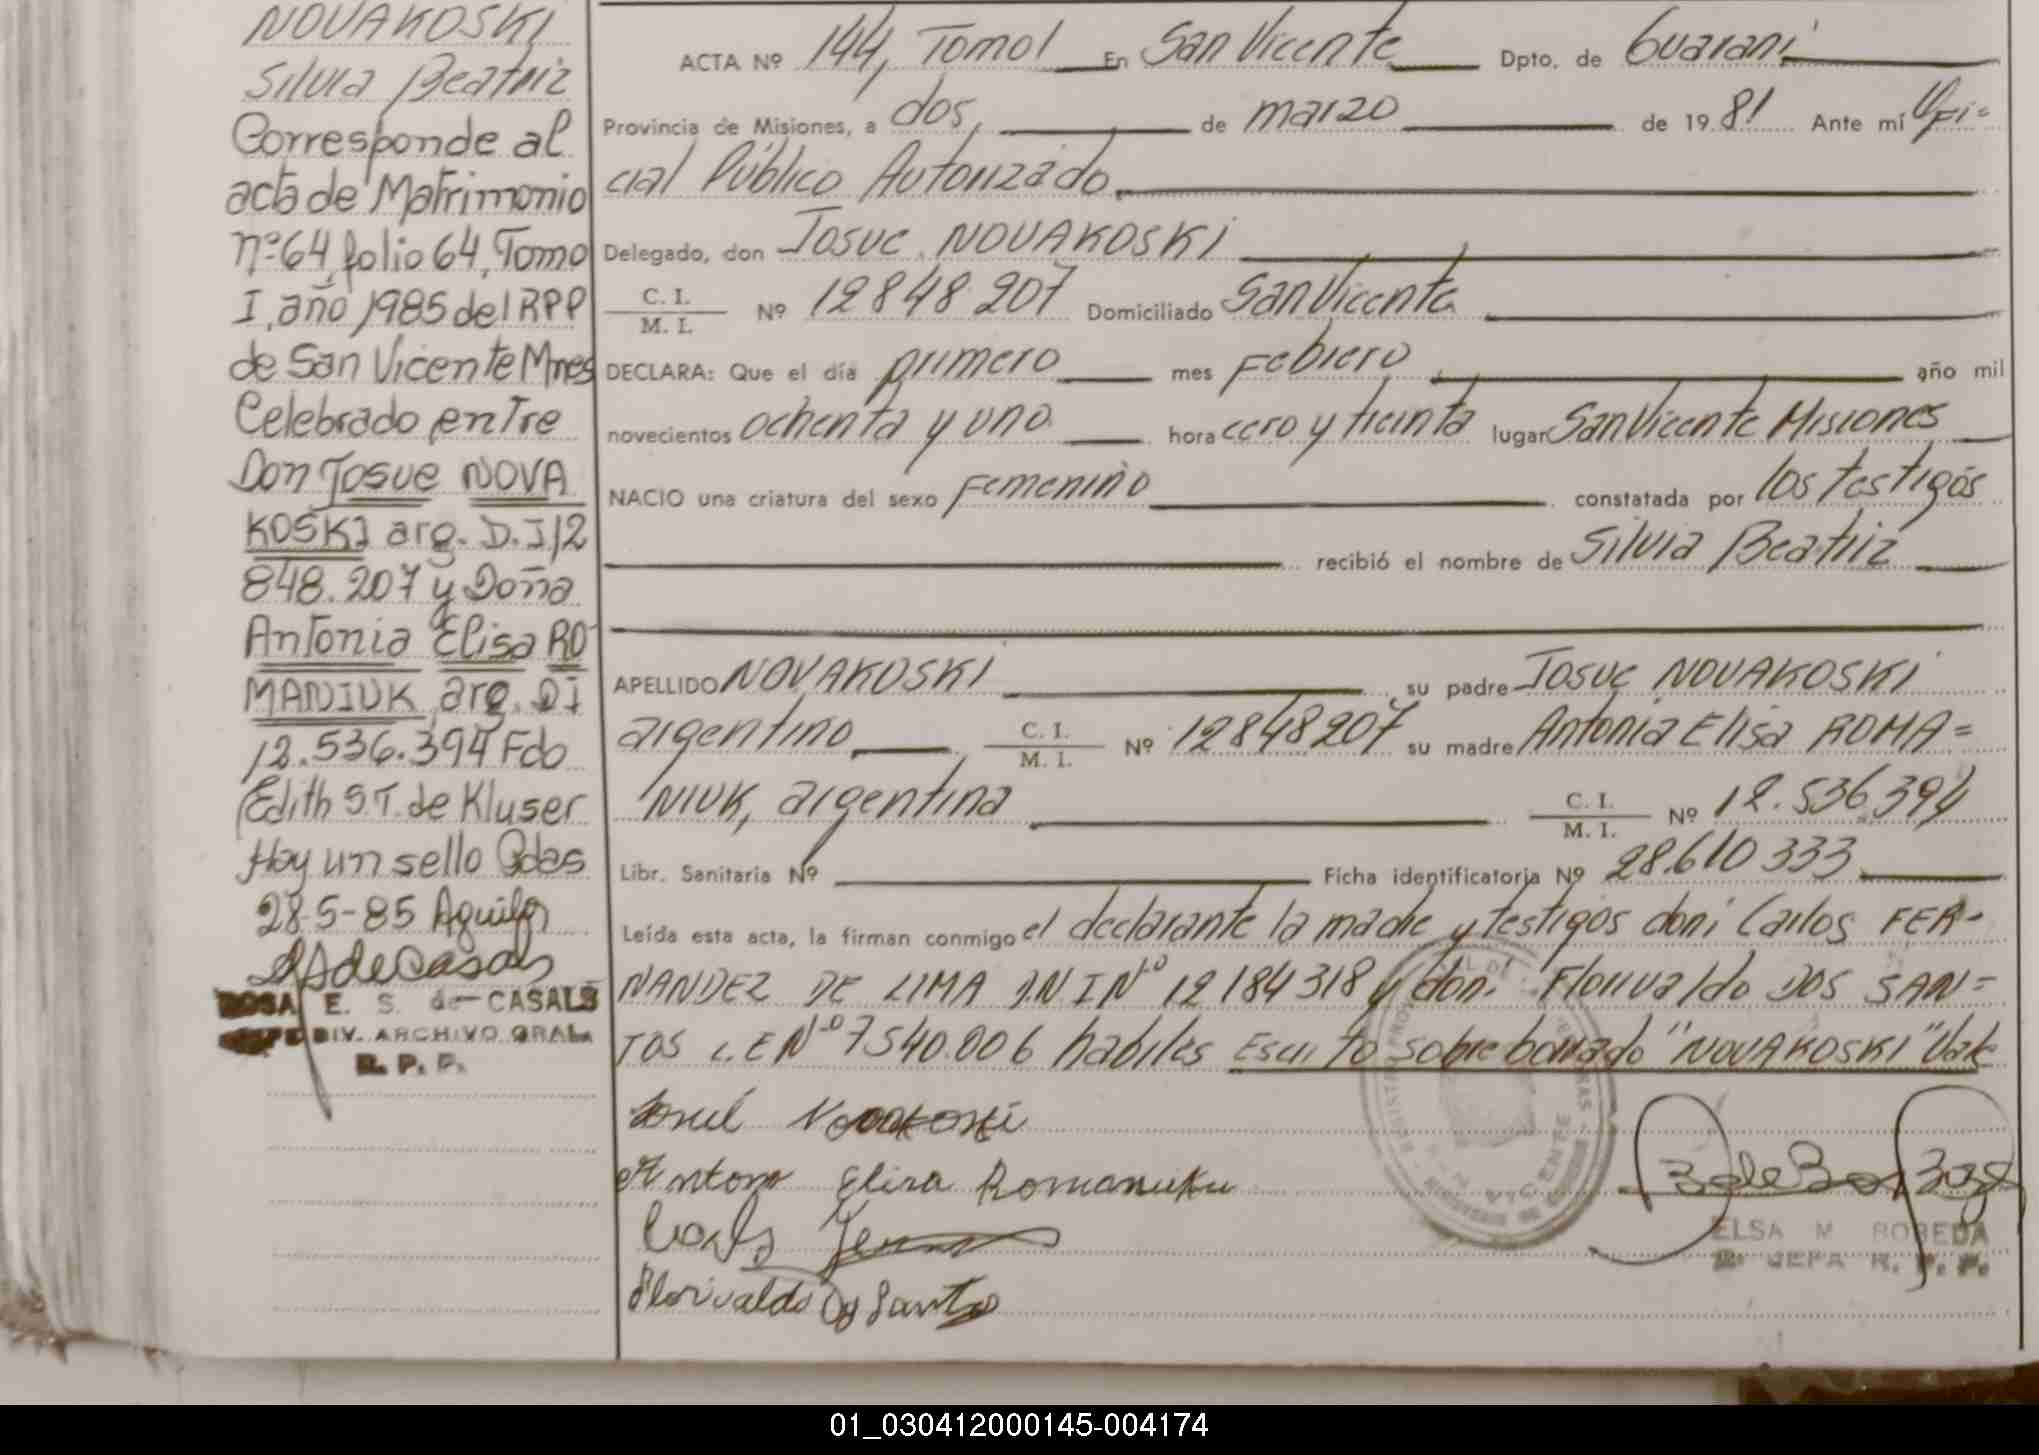 NOVAKOSKI
Silvia Beatriz
Corresponde al
acta de Matrimonio
nº 64, folio 64, Tomo
I, año 1985 del RPP
de San Vicente Mnes
Celebrado entre
Don Josue NOVA
KOSKI arg. D.I 12
848.207 y Doña
Antonia Elisa RO
MANIUK, arg. DI
12.536.394 Fdo
Edith S.T. de Kluser
Hay un sello Pdas
28-5-85
ROSA E. S. de CASALS
JEFE DIV. ARCHIVO GRAL.
R. P. P.
ACTA Nº 144, Tomo I En San Vicente Dpto. de Guarani
Provincia de Misiones, a dos, de marzo de 1981 Ante mí Ofi=
cial Público Autorizado,
Delegado, don Josue NOVAKOSKI
C. I.
M. I. Nº 12848.207 Domiciliado San Vicente
DECLARA: Que el día primero mes Febrero año mil
novecientos ochenta y uno hora cero y treinta lugar San Vicente Misiones
NACIO una criatura del sexo Femenino constatada por los testigos
recibió el nombre de Silvia Beatriz
APELLIDO NOVAKOSKI su padre Josue NOVAKOSKI
argentino C. I.
M. I. Nº 12848207 su madre Antonia Elisa ROMA=
NIUK, argentina C. I.
M. I. Nº 12.536.394
Libr. Sanitaria Nº Ficha identificatoria Nº 28.610 333
Leída esta acta, la firman conmigo el declarante la madre y testigos don: Carlos FER-
NANDEZ DE LIMA D.N.I Nº 12 184 318 y don: Florivaldo DOS SAN=
TOS L.E Nº 7540.006 habiles Escrito sobre borrado "NOVAKOSKI" Vale
Josué Novakoski
Elisa
Florivaldo Dos Santos
ELSA M BOBEDA
JEFA R. P. P.
01_030412000145-004174